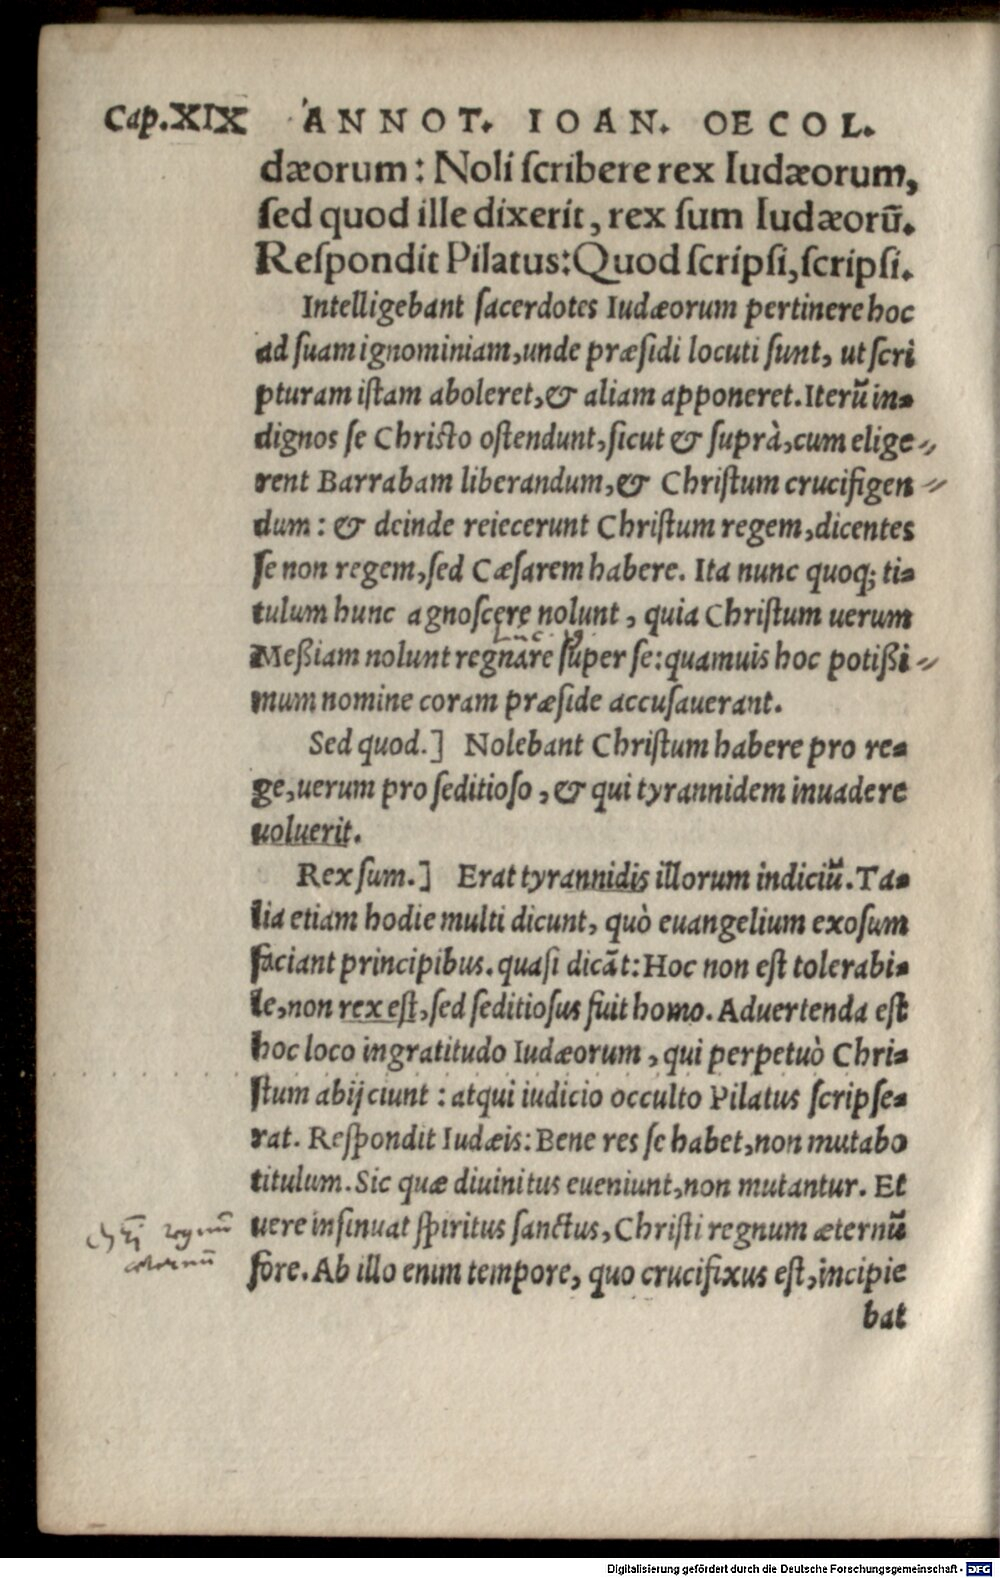 Cap.XIX ANNOT. IOAN. OECOL.
dæorum: Noli ſcribere rex Iudæorum,
ſed quod ille dixerit, rex ſum Iudæorũ.
Reſpondit Pilatus: Quod ſcripſi, ſcripſi.
Intelligebant ſacerdotes Iudæorum pertinere hoc
ad ſuam ignominiam, unde præſidi locuti ſunt, ut ſcri
pturam iſtam aboleret, & aliam apponeret. Iterũ in-
dignos ſe Chriſto oſtendunt, ſicut & ſuprà, cum elige-
rent Barrabam liberandum, & Chriſtum crucifigen-
dum: & deinde reiecerunt Chriſtum regem, dicentes
ſe non regem, ſed Cæſarem habere. Ita nunc quoq; ti-
tulum hunc agnoſcere nolunt, quia Chriſtum uerum
Luc. 19.
Meßiam nolunt regnare ſuper ſe: quamuis hoc potißi-
mum nomine coram præſide accuſauerant.
Sed quod.] Nolebant Chriſtum habere pro re-
ge, uerum pro ſeditioſo, & qui tyrannidem inuadere
uoluerit.
Rex ſum.] Erat tyrannidis illorum indiciũ. Ta-
lia etiam hodie multi dicunt, quò euangelium exoſum
faciant principibus. quaſi dicãt: Hoc non eſt tolerabi-
le, non rex eſt, ſed ſeditioſus fuit homo. Aduertenda eſt
hoc loco ingratitudo Iudæorum, qui perpetuò Chri-
ſtum abijciunt: atqui iudicio occulto Pilatus ſcripſe-
rat. Reſpondit Iudæis: Bene res ſe habet, non mutabo
titulum. Sic quæ diuinitus eueniunt, non mutantur. Et
uere inſinuat ſpiritus ſanctus, Chriſti regnum æternũ
regnũ
æternũ
fore. Ab illo enim tempore, quo crucifixus eſt, incipie
bat
Digitalisierung gefördert durch die Deutsche Forschungsgemeinschaft - DFG